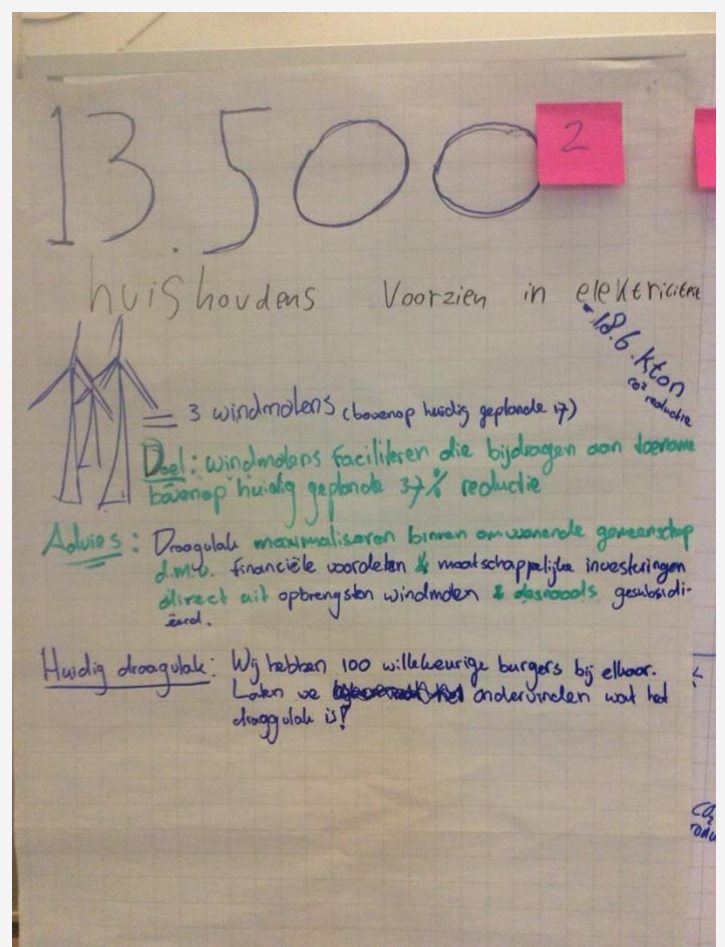 13.500
2
huishoudens Voorzien in elektriciteit
-18.6. kton
CO2 reductie
= 3 windmolens (bovenop huidig geplande 17)
Doel: windmolens faciliteren die bijdragen aan toename
bovenop huidig geplande 37% reductie
Advies: Draagvlak maximaliseren binnen omwonende gemeenschap
d.m.v. financiële voordelen & maatschappelijke investeringen
direct uit opbrengsten windmolen & desnoods gesubsidi-
eerd.
Huidig draagvlak: Wij hebben 100 willekeurige burgers bij elkaar.
Laten we ondervinden wat het
draagvlak is!
CO2